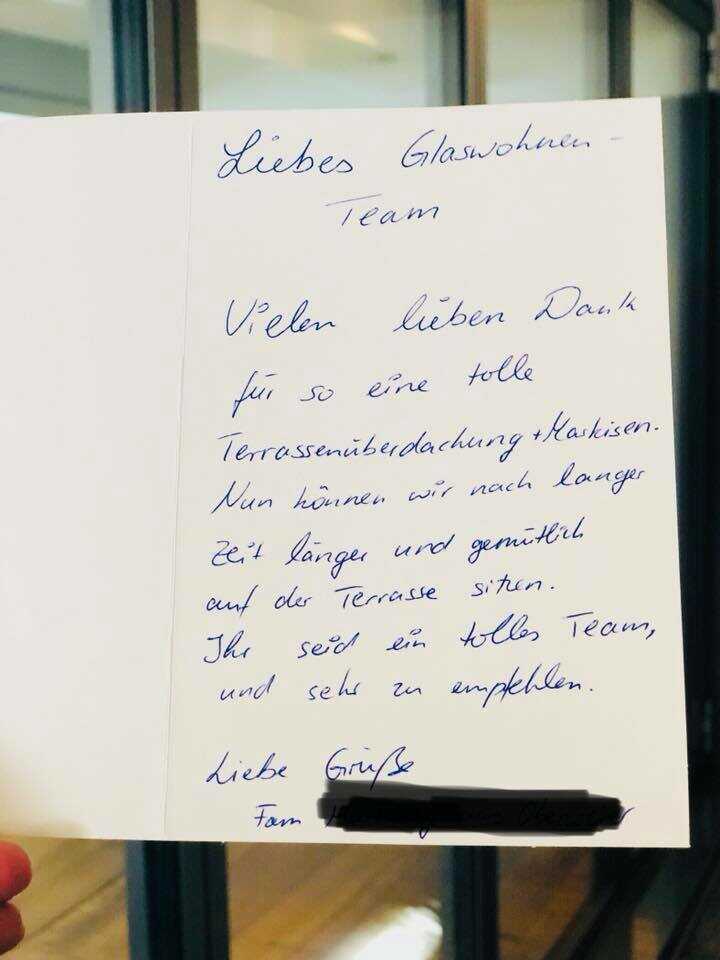 Liebes Glaswohnen-
Team
Vielen lieben Dank
für so eine tolle
Terrassenüberdachung + Markisen.
Nun können wir nach langer
Zeit länger und gemütlich
auf der Terrasse sitzen.
Ihr seid ein tolles Team,
und sehr zu empfehlen.
Liebe Grüße
Fam